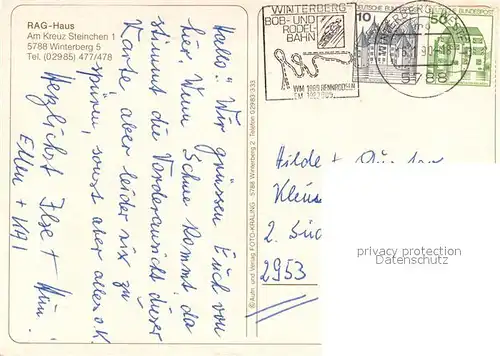 RAG-Haus
Am Kreuz Steinchen 1
5788 Winterberg 5
Tel. (02985) 477/478
Hallo! Wir grüssen Euch von
hier. Wenn Schnee kommt, da
stimmt die Vorderansicht dieser
Karte aber leider nix zu
spüren, sonst aber alles o.K.
Herzlichst Ilse +
Ellen +
© Aufn. und Verlag FOTO-KRÄLING 5788 Winterberg 2 Telefon 02983-333
WINTERBERG
BOB- UND
RODEL
BAHN
WM 1989 RENNRODELN
10
DEUTSCHE BUNDESPOST
50
DEUTSCHE BUNDESPOST
WINTERBERG, WESTF
90-18
5788
Hilde +
2953
privacy protection
Datenschutz